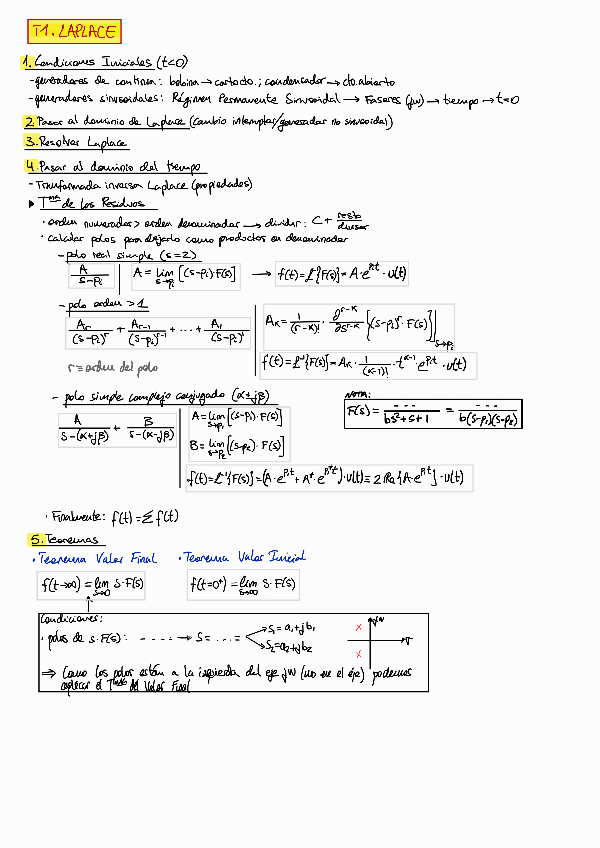 T1. LAPLACE
1. Condiciones Iniciales (t<0)
- generadores de continua: bobina → cortocto.; condensador → cto. abierto
- generadores sinusoidales: Régimen Permanente Sinusoidal → Fasores (jw) → tiempo → t=0
2. Pasar al dominio de Laplace (cambio interruptor/generador no sinusoidal)
3. Resolver Laplace
4. Pasar al dominio del tiempo
- Transformada inversa Laplace (propiedades)
▸ Tma de los Residuos
· orden numerador > orden denominador → dividir: C + resto/divisor
· calcular polos para dejarlo como productos en denominador
- polo real simple (s=2)
A/(s-pi) | A = lim s→pi [(s-pi)·F(s)] → f(t) = L⁻¹{F(s)} = A·e^(pi t)·u(t)
- polo orden > 1
Ar/(s-pi)^r + Ar-1/(s-pi)^(r-1) + ... + A1/(s-pi)^1 | AK = 1/(r-K)! · ∂^(r-K)/∂s^(r-K) [(s-pi)^r · F(s)] s→pi
r ≡ orden del polo
f(t) = L⁻¹{F(s)} = AK · 1/(K-1)! · t^(K-1) · e^(pi t) · u(t)
- polo simple complejo conjugado (α±jβ)
A/(s-(α+jβ)) + B/(s-(α-jβ)) | A = lim s→p1 [(s-p1)·F(s)]
B = lim s→p2 [(s-p2)·F(s)]
f(t) = L⁻¹{F(s)} = (A·e^(p1 t) + A*·e^(p1* t))·u(t) = 2 Re{A·e^(p1 t)}·u(t)
NOTA:
F(s) = ---/(bs²+s+1) = ---/(b(s-p1)(s-p2))
· Finalmente: f(t) = Σ f(t)
5. Teoremas
· Teorema Valor Final · Teorema Valor Inicial
f(t→∞) = lim s→0 s·F(s) f(t=0⁺) = lim s→∞ s·F(s)
Condiciones:
· polos de s·F(s): - - - - → s = ... = s1 = a1+jb1
s2 = a2+jb2
jw
σ
⇒ Como los polos están a la izquierda del eje jw (no en el eje) podemos
aplicar el Tma del Valor Final